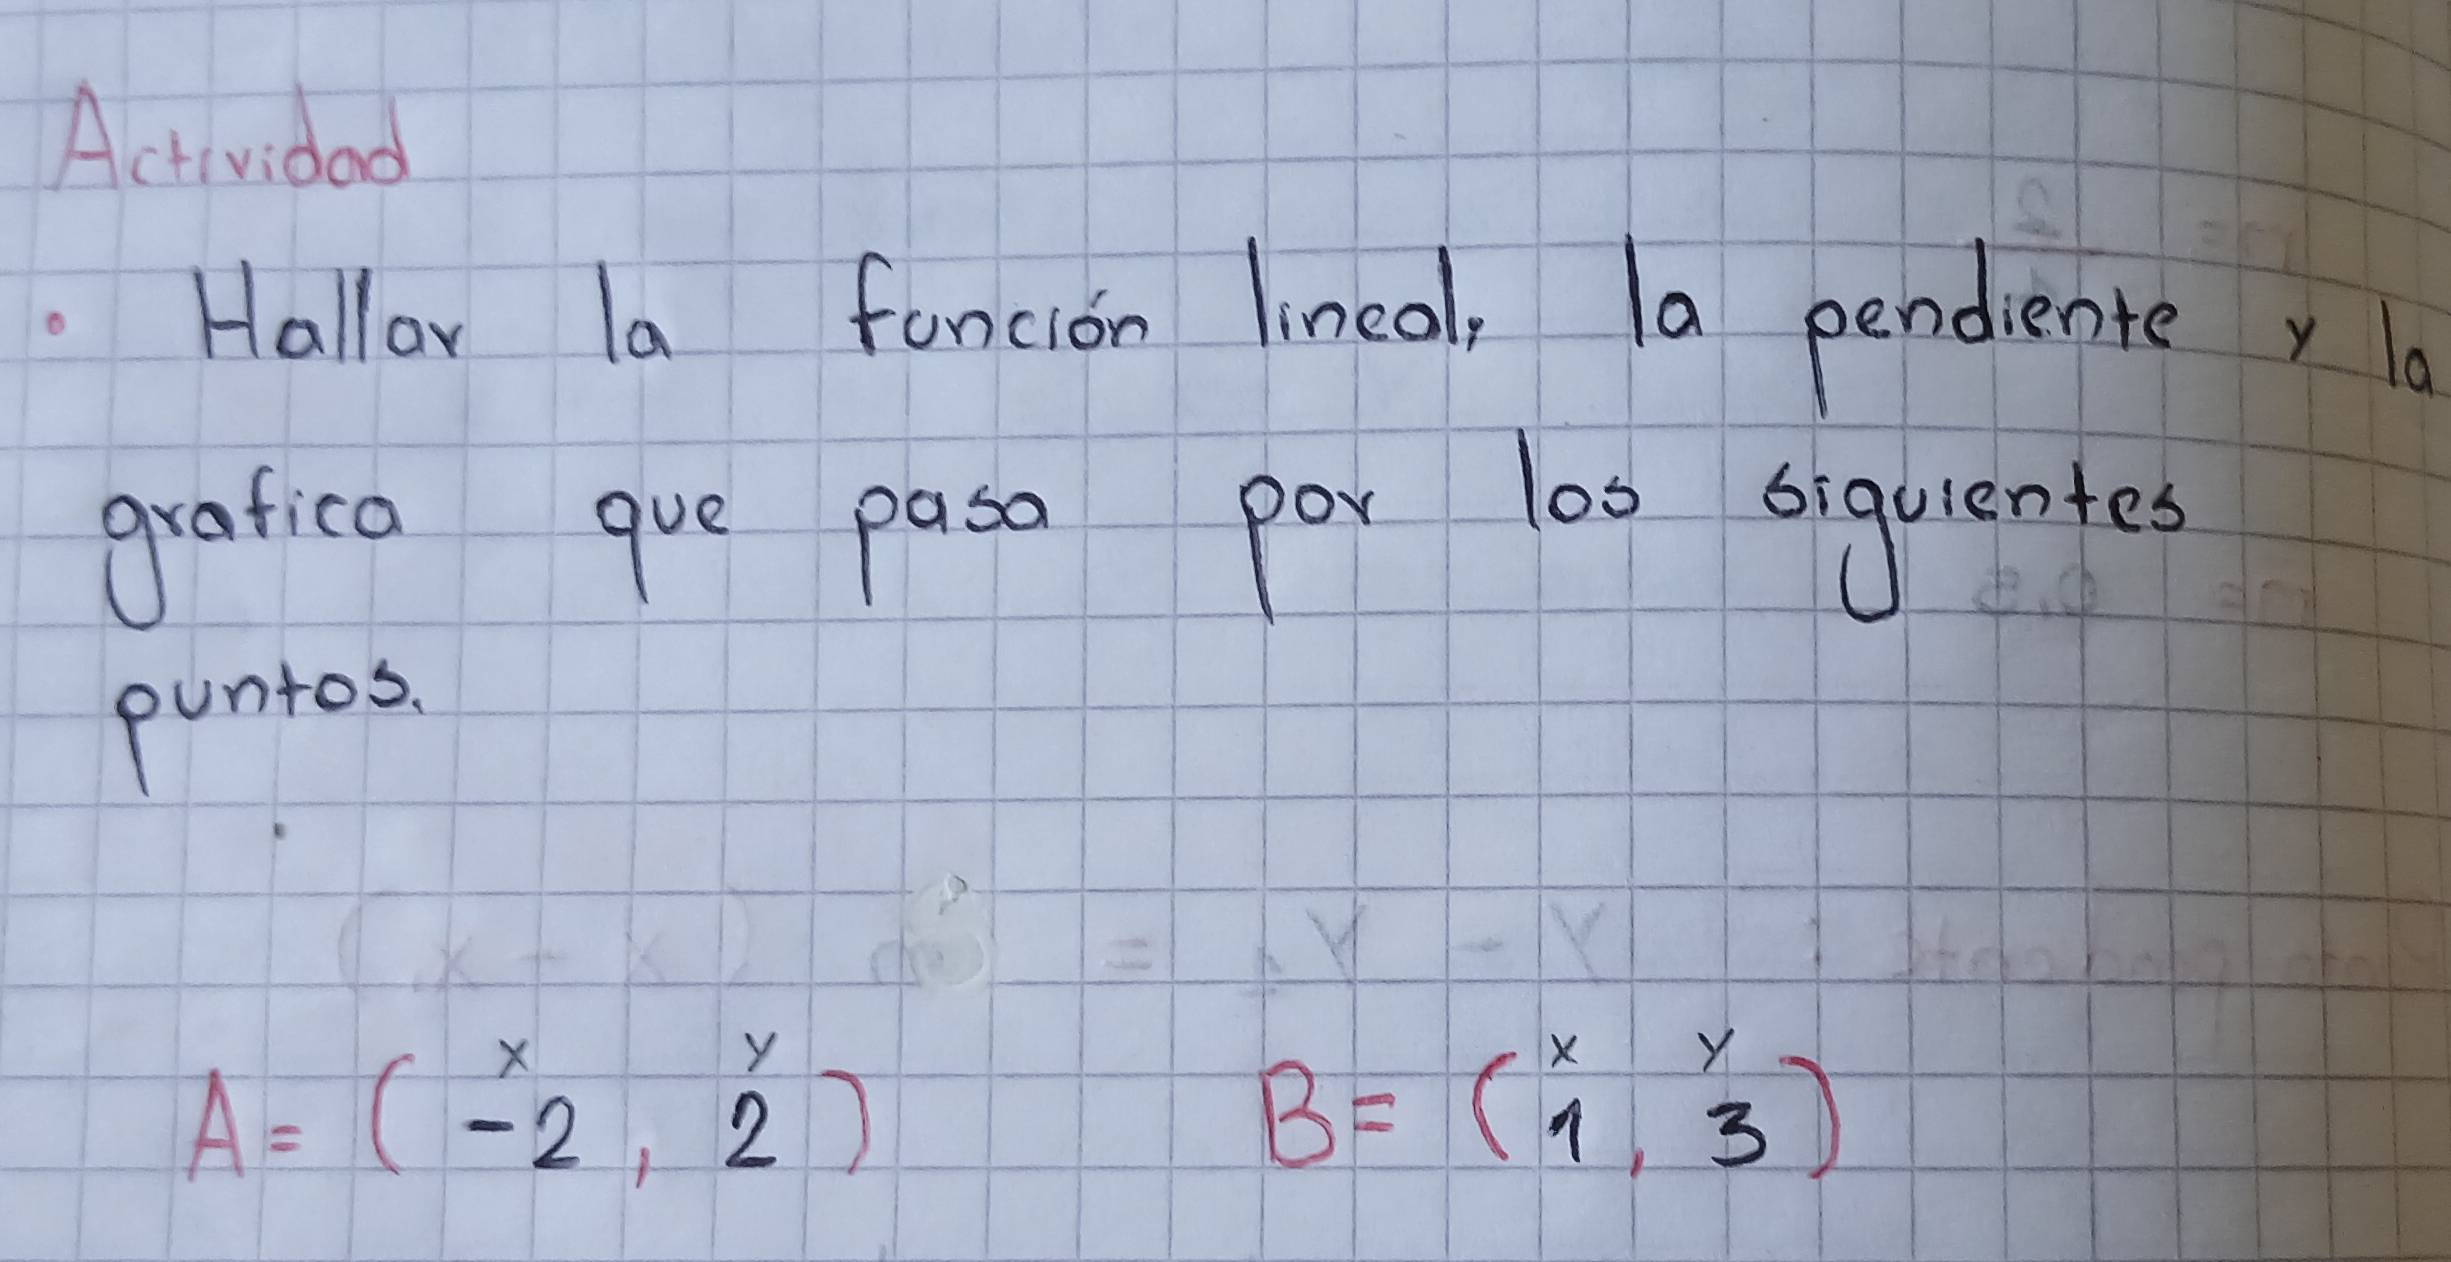 Actividad
• Hallar la función lineal, la pendiente y la
grafica que pasa por los siguientes
puntos.
x y x y
A = ( -2 , 2 ) B = ( 1 , 3 )